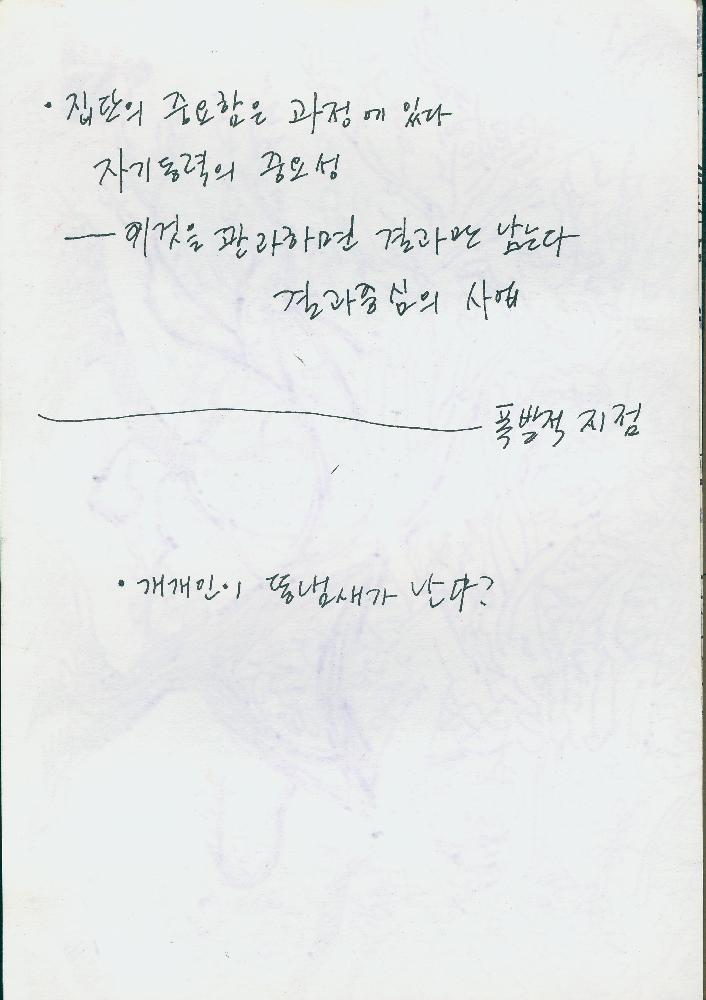 · 집단의 중요함은 과정에 있다
자기동력의 중요성
— 이것을 관과하면 결과만 남는다
결과중심의 사업
폭발적 지점
· 개개인이 똥냄새가 난다?